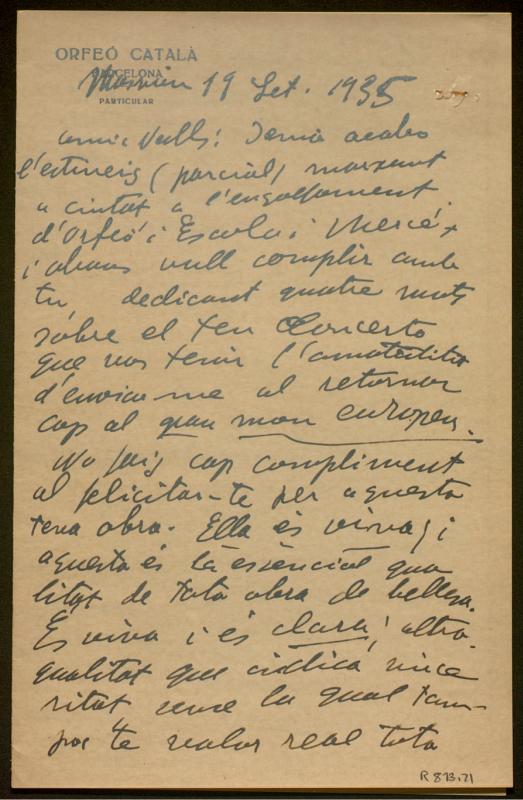 ORFEÓ CATALÀ
BARCELONA
PARTICULAR
19 Set. 1935
amic Valls: Demà acabo
l'estiueig (parcial) marxant
a ciutat a l'engolfament
d'Orfeó i Escola i Mercè,
i abans vull complir amb
tu dedicant quatre mots
sobre el teu Concerto
que vas tenir l'amabilitat
d'enviar-me al retornar
cap al gran mon europeu.
No faig cap compliment
al felicitar-te per aquesta
teva obra. Ella és viva, i
aquesta és la essencial qua
litat de tota obra de bellesa.
És viva i és clara; altra
qualitat que indica since
ritat sense la qual tam-
poc te valor real tota
R 873.71